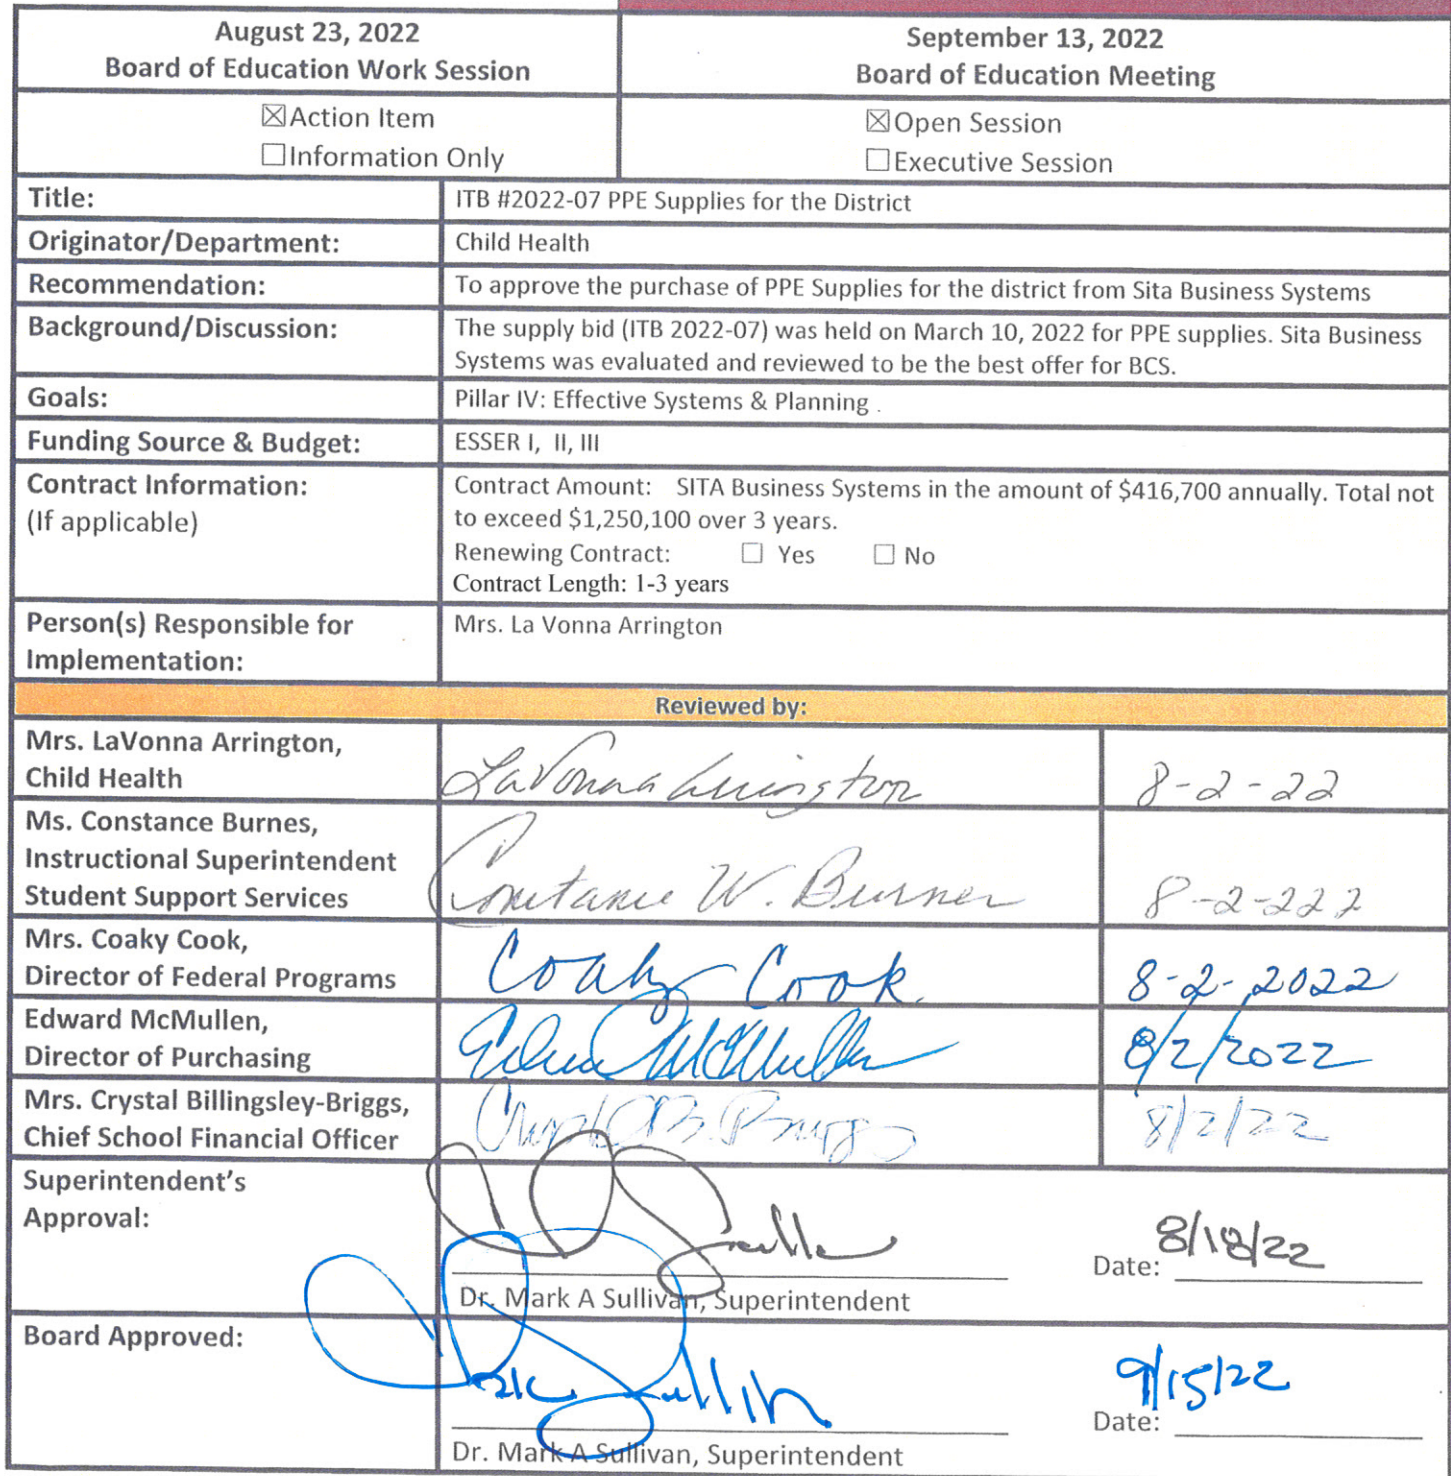 August 23, 2022
Board of Education Work Session
September 13, 2022
Board of Education Meeting
☒Action Item
☐Information Only
☒Open Session
☐Executive Session
Title:
ITB #2022-07 PPE Supplies for the District
Originator/Department:
Child Health
Recommendation:
To approve the purchase of PPE Supplies for the district from Sita Business Systems
Background/Discussion:
The supply bid (ITB 2022-07) was held on March 10, 2022 for PPE supplies. Sita Business
Systems was evaluated and reviewed to be the best offer for BCS.
Goals:
Pillar IV: Effective Systems & Planning .
Funding Source & Budget:
ESSER I, II, III
Contract Information:
(If applicable)
Contract Amount: SITA Business Systems in the amount of $416,700 annually. Total not
to exceed $1,250,100 over 3 years.
Renewing Contract: ☐ Yes ☐ No
Contract Length: 1-3 years
Person(s) Responsible for
Implementation:
Mrs. La Vonna Arrington
Reviewed by:
Mrs. LaVonna Arrington,
Child Health
LaVonna Arrington
8-2-22
Ms. Constance Burnes,
Instructional Superintendent
Student Support Services
Constance W. Burnes
8-2-222
Mrs. Coaky Cook,
Director of Federal Programs
Coaky Cook
8-2-2022
Edward McMullen,
Director of Purchasing
Edward McMullen
8/2/2022
Mrs. Crystal Billingsley-Briggs,
Chief School Financial Officer
8/2/22
Superintendent's
Approval:
8/18/22
Date:
Dr. Mark A Sullivan, Superintendent
Board Approved:
9/15/22
Date:
Dr. Mark A Sullivan, Superintendent